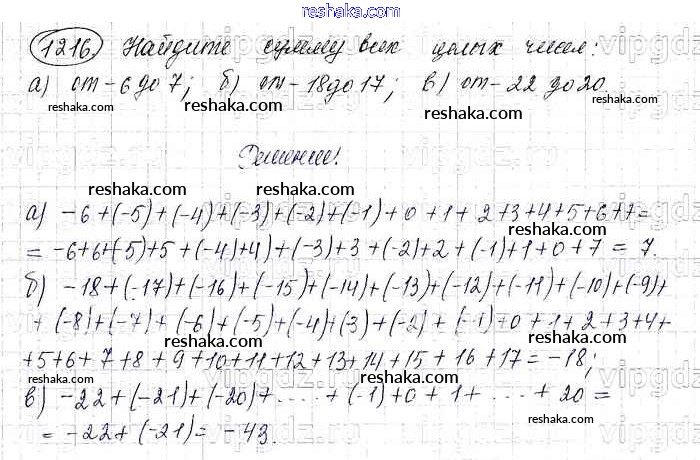 reshaka.com
1216. Найдите сумму всех целых чисел:
а) от -6 до 7; б) от -18 до 17; в) от -22 до 20.
reshaka.com reshaka.com reshaka.com
Решение:
reshaka.com reshaka.com
а) -6+(-5)+(-4)+(-3)+(-2)+(-1)+0+1+2+3+4+5+6+7=
= -6+6+(-5)+5+(-4)+4)+(-3)+3+(-2)+2+(-1)+1+0+7=7.
reshaka.com reshaka.com
б) -18+(-17)+(-16)+(-15)+(-14)+(-13)+(-12)+(-11)+(-10)+(-9)+
+(-8)+(-7)+(-6)+(-5)+(-4)+(3)+(-2)+(-1)+0+1+2+3+4+
reshaka.com reshaka.com
+5+6+7+8+9+10+11+12+13+14+15+16+17=-18;
reshaka.com reshaka.com
в) -22+(-21)+(-20)+....+(-1)+0+1+...+20=
reshaka.com reshaka.com
= -22+(-21)=-43.